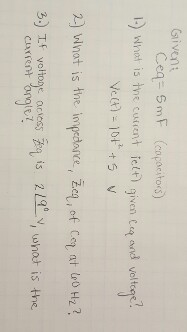 Given:
Ceq = 5mF (capacitors)
1.) What is the current ic(t) given Ceq and voltage?
Vc(t) = 10t² + 5 V
2.) What is the impedance, Z̄eq, of Ceq at 60 Hz?
3.) If voltage across Z̄eq is 2∠9° V, what is the
current angle?